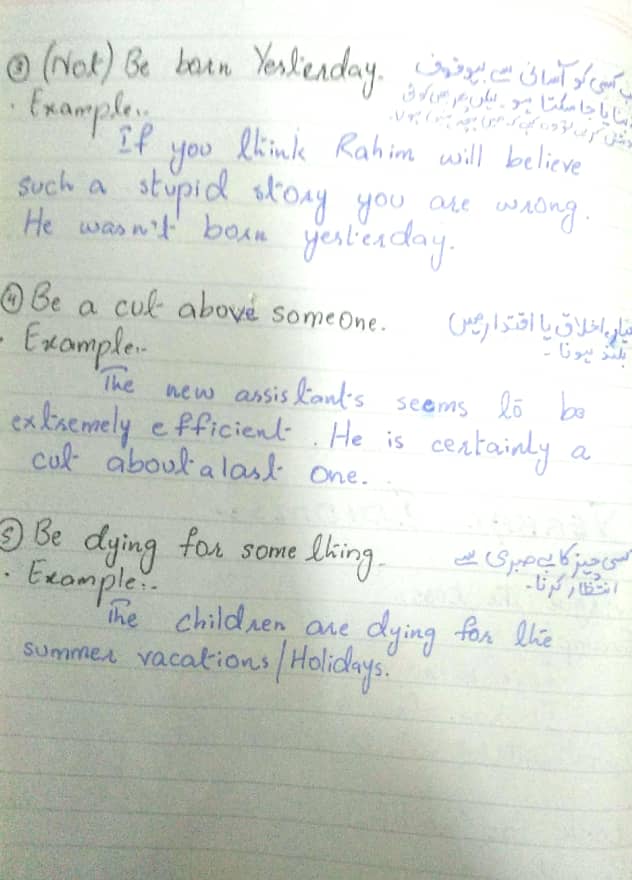 ③ (Not) Be born Yesterday.
کسی کو آسانی سے بیوقوف
• Example:-
If you think Rahim will believe
such a stupid story you are wrong.
He wasn't born yesterday.
④ Be a cut above someone.
معیار، اخلاق یا اقتدار میں
بلند ہونا -
• Example:-
The new assistant's seems to be
extremely efficient. He is certainly a
cut about a last one.
⑤ Be dying for some thing.
کسی چیز کا بے صبری سے
انتظار کرنا -
• Example:-
The children are dying for the
summer vacations/Holidays.